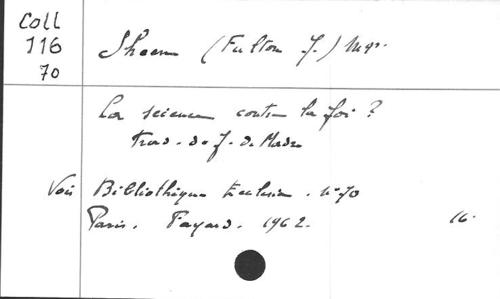 Coll
116
70
Sheen (Fulton J.) Mgr.
La science contre la foi ?
Trad. de J. de Madre
Voir Bibliothèque Ecclesia. N° 70
Paris. Fayard. 1962. 16.